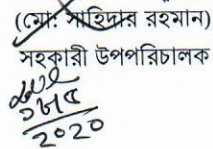 (মো: সাহিদার রহমান)
সহকারী উপপরিচালক
২০২০